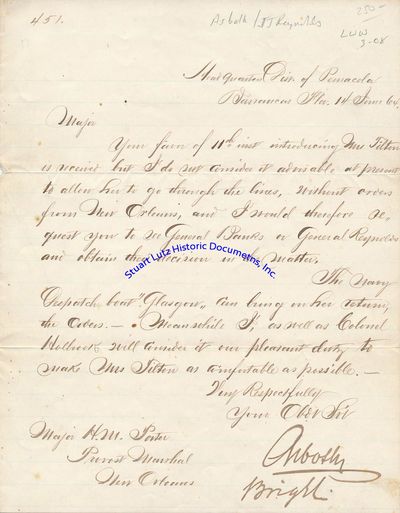 451.
Asboth / JJ Reynolds
250-
LWW
3-08
Head Quarters Dist. of Pensacola
Barrancas Fla. 14 June 64.
Major
Your favor of 11th inst introducing Mrs Tilton
is received but I do not consider it advisable at present
to allow her to go through the lines, without orders
from New Orleans, and I would therefore re,
quest you to see General Banks or General Reynolds
and obtain their decision in the matter.
The Navy
Despatch boat "Glasgow" can bring on her return,
the orders. — Meanwhile I, as well as Colonel
Holbrook will consider it our pleasant duty to
make Mrs Tilton as comfortable as possible. —
Very Respectfully
Your Obt Svt
Asboth
Brigh.
Major H. M. Porter
Provost Marshal
New Orleans
Stuart Lutz Historic Documetns, Inc.